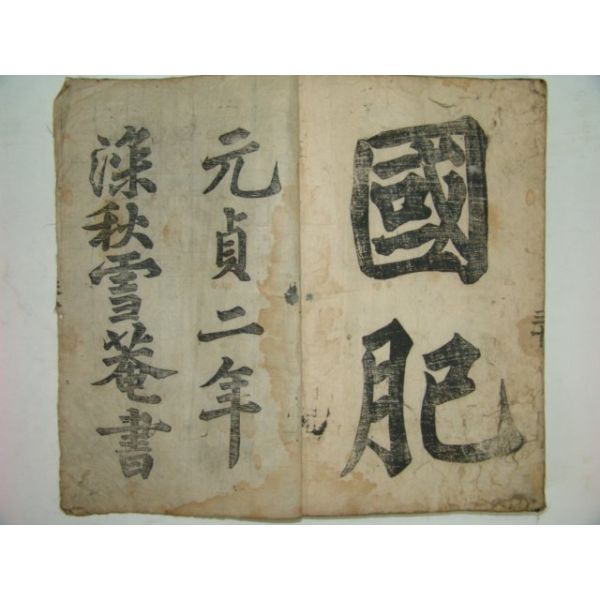 國肥
元貞二年
深秋雪菴書